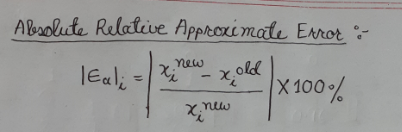 Absolute Relative Approximate Error :-
|∈a|i = | (xi^new - xi^old) / xi^new | × 100%